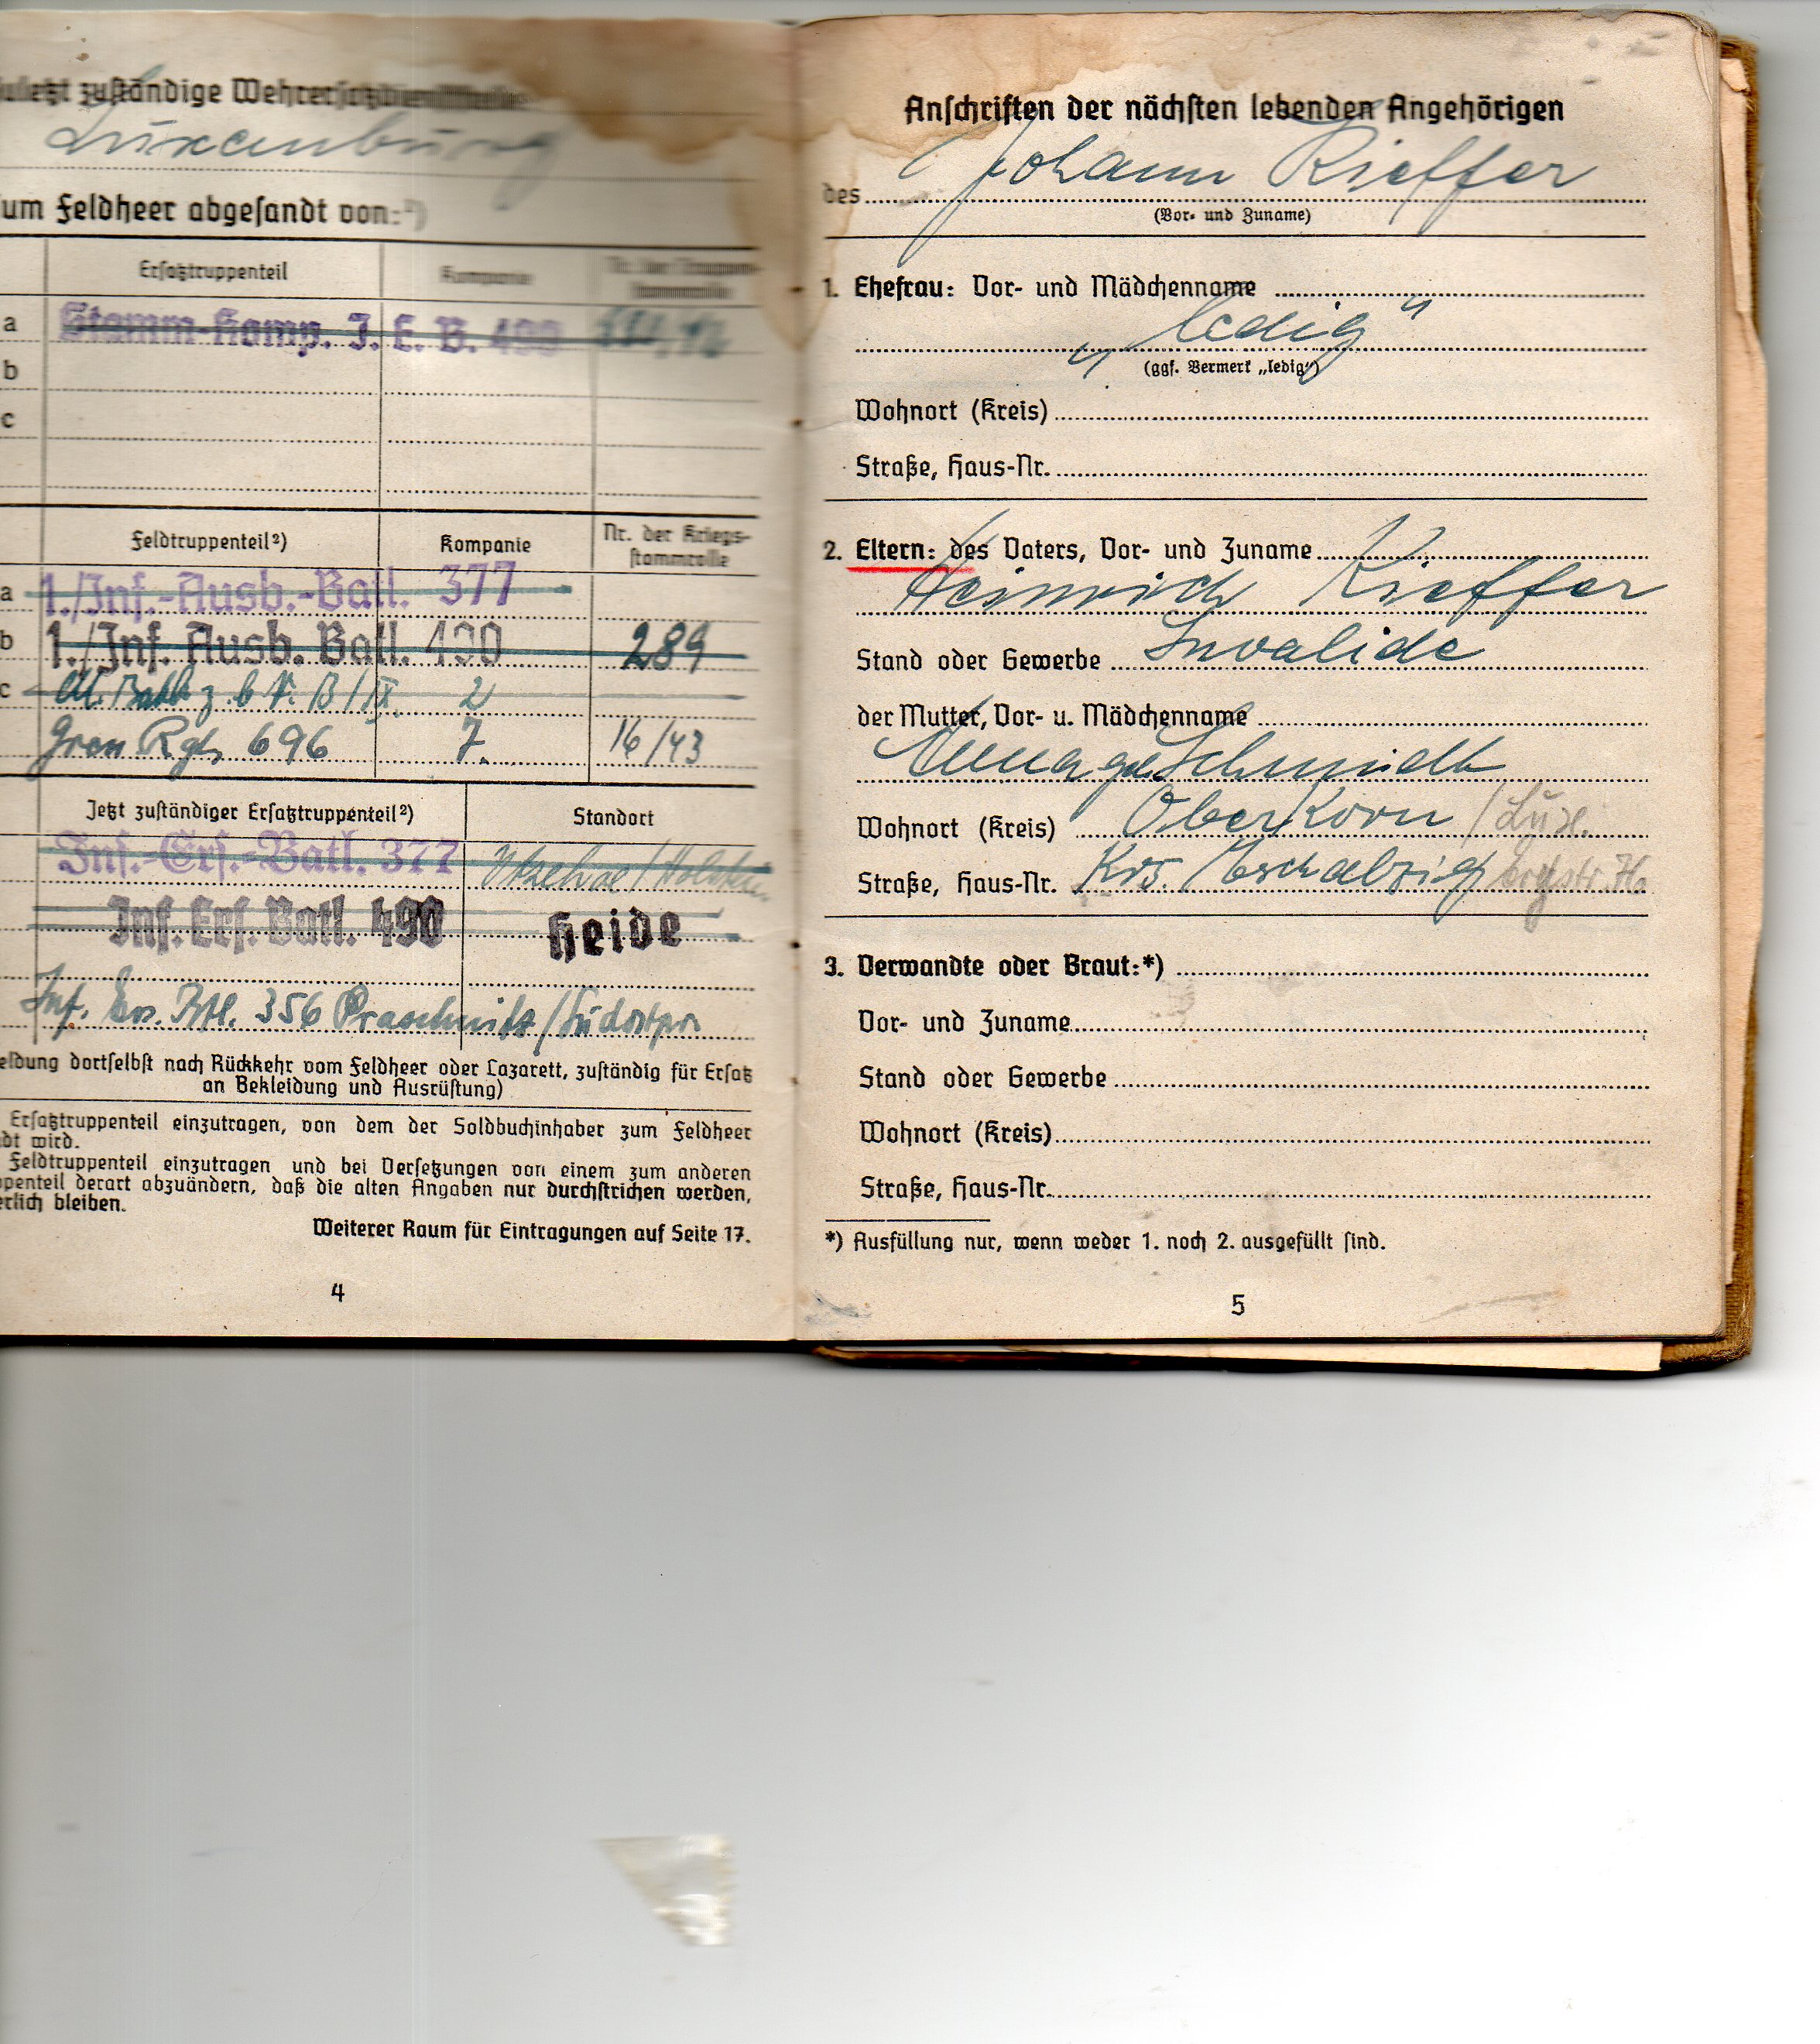 zuständige Wehrersatzdienststelle
Luxemburg
um Feldheer abgesandt von:²)
Ersatztruppenteil Kompanie Nr. der Truppen-
stammrolle
a Stamm-Komp. I. E. B. 490
b
c
Feldtruppenteil²) Kompanie Nr. der Kriegs-
stammrolle
a 1./Inf.-Ausb.-Batl. 377
b 1./Inf. Ausb. Batl. 490 289
c z. b. V. B/IX. 2
Gren Rgt. 696 7. 16/43
Jetzt zuständiger Ersatztruppenteil²) Standort
Inf.-Ers.-Batl. 377 Itzehoe / Holstein
Inf. Ers. Batl. 490 Heide
Inf. Ers. Btl. 356 Praschnitz/Südostpr
eldung dortselbst nach Rückkehr vom Feldheer oder Lazarett, zuständig für Ersatz
an Bekleidung und Ausrüstung)
Ersatztruppenteil einzutragen, von dem der Soldbuchinhaber zum Feldheer
dt wird.
Feldtruppenteil einzutragen und bei Versetzungen von einem zum anderen
ppenteil derart abzuändern, daß die alten Angaben nur durchstrichen werden,
erlich bleiben.
Weiterer Raum für Eintragungen auf Seite 17.
4
Anschriften der nächsten lebenden Angehörigen
des Johann Kieffer
(Vor- und Zuname)
1. Ehefrau: Vor- und Mädchenname
„ledig"
(ggf. Vermerk „ledig")
Wohnort (Kreis)
Straße, Haus-Nr.
2. Eltern: des Vaters, Vor- und Zuname
Heinrich Kieffer
Stand oder Gewerbe Invalide
der Mutter, Vor- u. Mädchenname
Anna geb. Schmidt
Wohnort (Kreis) Oberkorn / Lux.
Straße, Haus-Nr. Krs. Esch alzig
3. Verwandte oder Braut:*)
Vor- und Zuname
Stand oder Gewerbe
Wohnort (Kreis)
Straße, Haus-Nr.
*) Ausfüllung nur, wenn weder 1. noch 2. ausgefüllt sind.
5